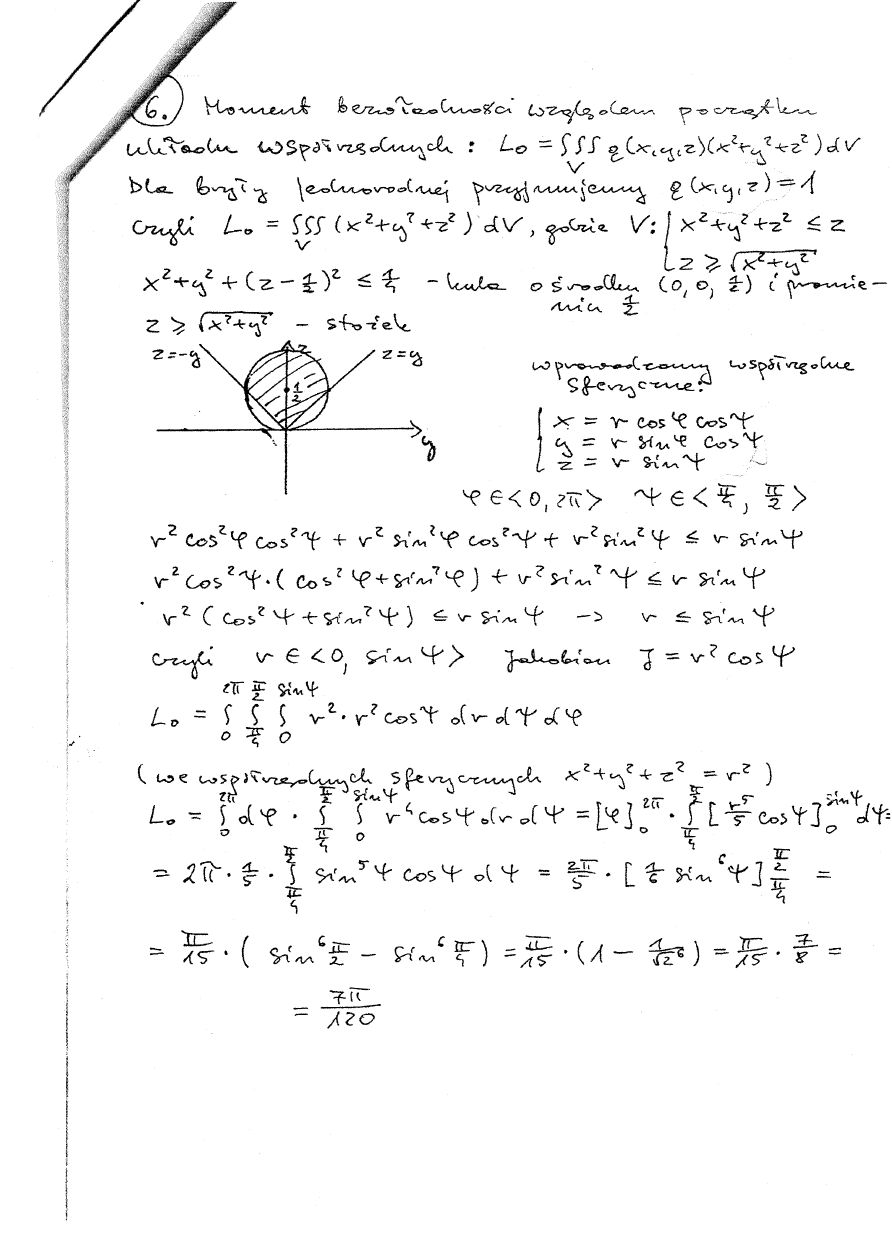 6. Moment bezwładności względem początku
układu współrzędnych : L₀ = ∭ ρ(x,y,z)(x²+y²+z²)dV
V
Dla bryły jednorodnej przyjmujemy ρ(x,y,z)=1
czyli L₀ = ∭ (x²+y²+z²) dV, gdzie V: { x²+y²+z² ≤ z
V
z ≥ √(x²+y²)
x²+y²+(z-1/2)² ≤ 1/4 - kula o środku (0,0,1/2) i promie-
niu 1/2
z ≥ √(x²+y²) - stożek
z=-y z z=y
1/2
y
wprowadzamy współrzędne
sferyczne:
{ x = r cosφ cosψ
y = r sinφ cosψ
z = r sinψ
φ ∈ <0, 2π> ψ ∈ <π/4, π/2>
r² cos²φ cos²ψ + r² sin²φ cos²ψ + r² sin²ψ ≤ r sinψ
r² cos²ψ·(cos²φ+sin²φ) + r² sin²ψ ≤ r sinψ
r² (cos²ψ+sin²ψ) ≤ r sinψ -> r ≤ sinψ
czyli r ∈ <0, sinψ> Jakobian J = r² cosψ
L₀ = ∫₀^{2π} ∫_{π/4}^{π/2} ∫₀^{sinψ} r²·r² cosψ dr dψ dφ
(we współrzędnych sferycznych x²+y²+z² = r²)
L₀ = ∫₀^{2π} dφ · ∫_{π/4}^{π/2} ∫₀^{sinψ} r⁴ cosψ dr dψ = [φ]₀^{2π} · ∫_{π/4}^{π/2} [r⁵/5 cosψ]₀^{sinψ} dψ=
= 2π · 1/5 · ∫_{π/4}^{π/2} sin⁵ψ cosψ dψ = 2π/5 · [1/6 sin⁶ψ]_{π/4}^{π/2} =
= π/15 · ( sin⁶ π/2 - sin⁶ π/4 ) = π/15 · (1 - 1/√2⁶) = π/15 · 7/8 =
= 7π/120